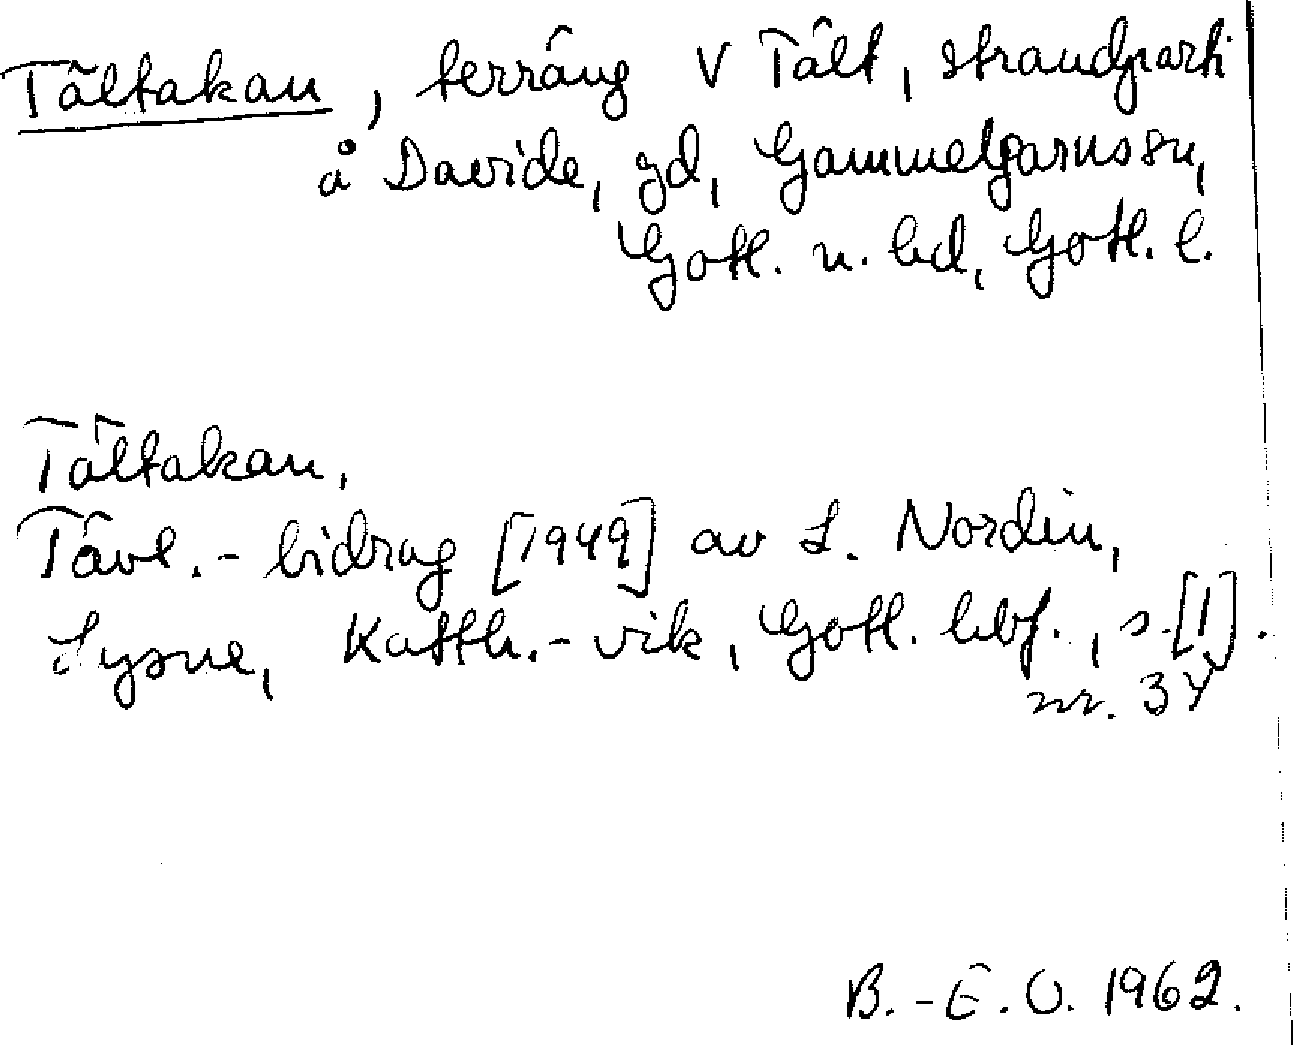 Tältakan, terräng V Tält, strandparti
å Davide, gd, Gammelgarns sn,
Gotl. n. hd, Gotl. l.
Tältakan,
Tävl.-bidrag [1949] av L. Nordin,
Sysne, Katth.-vik, Gotl. hbf., s.[1].
nr. 34
B.-E.O. 1962.